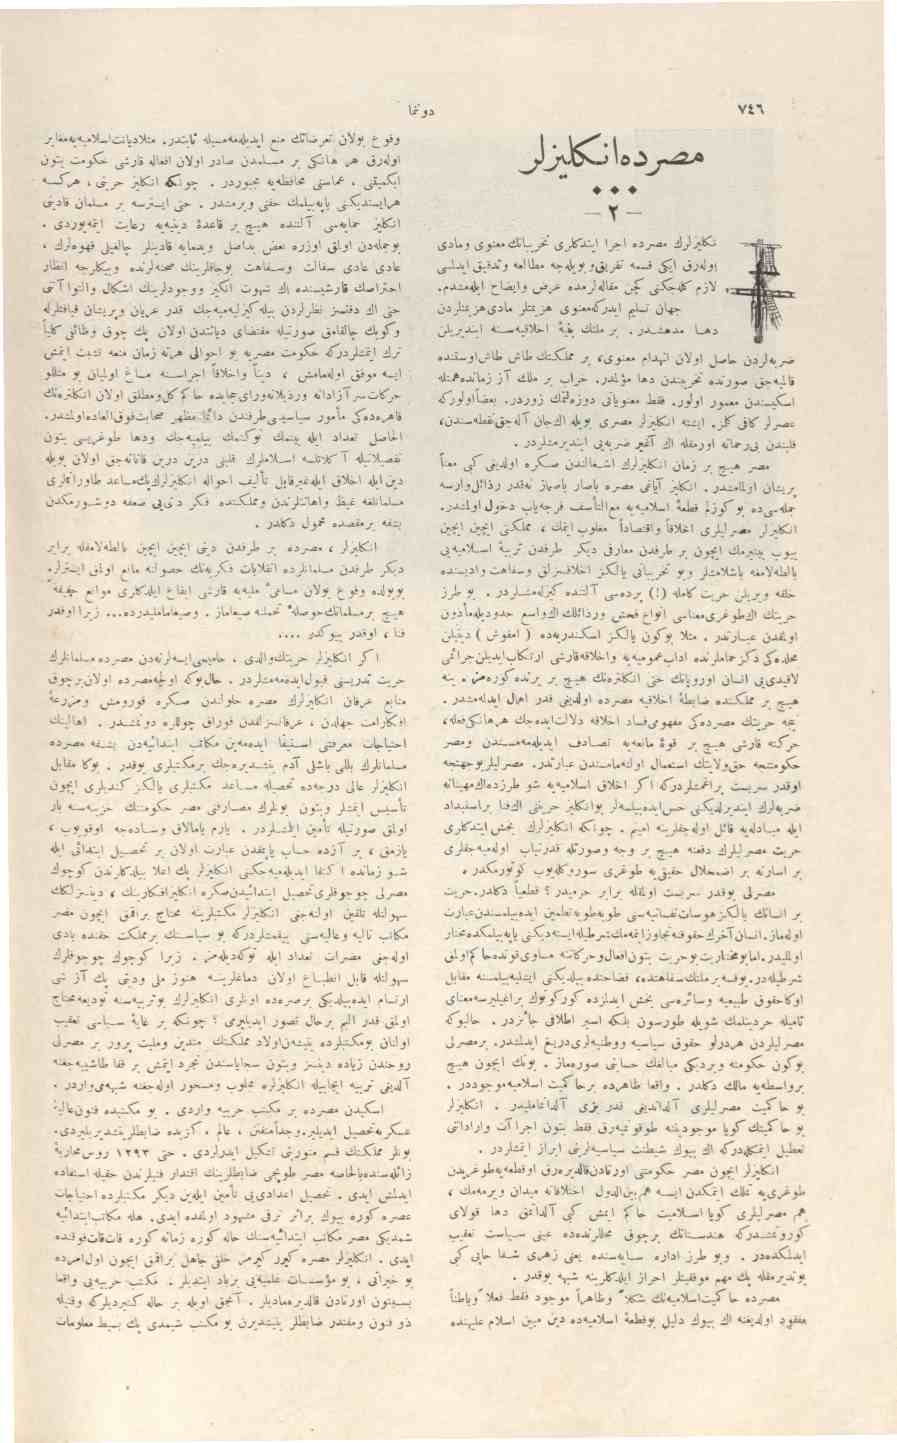 ٧٤٦
دوننما
مصرده انكليزلر
— ٢ —
انكليزلرك مصرده اجرا ايتدكلرى تخريباتك معنوى ومادى
اولهرق ايكى قسمه تفريقى و بويلهجه مطالعه وتدقيق ايدلسى
لازم كلهجكنى كچن مقالهلرمده عرض وايضاح ايلهمشدم.
جهان تسليم ايدركه معنوى هزيمتلر مادى هزيمتلردن
دها مدهشدر. بر ملتك بنية اخلاقيهسنه اينديريلن
ضربهلردن حاصل اولان انهدام معنوى، بر مملكتك طاش طاش اوستنده
قالميهجق صورتده تخريبندن دها مؤلمدر. خراب بر ملك آز زمانده همتله
اسكيسندن معمور اولور. فقط معنوياتى دوزهلتمك زوردر. بعضاً اولوركه
عصرلر كافى كلز. ايشته انكليزلر مصرى بويله اك جان آلهجق نقطهسندن،
قلبندن بىرحمانه اورمغله اك آغير ضربهيى اينديرمشلردر.
مصر هيچ بر زمان انكليزلرك اشغالندن صكره اولديغى كبى معناً
پريشان اولمامشدر. انكليز آياغى مصره باصار باصماز نهقدر رذائل وارسه
جملهسى ده بو كوزل قطعهٔ اسلاميهيه مع التأسف فرجهياب دخول اولمشدر.
انكليزلر مصرليلرى اخلاقاً واقتصاداً مغلوب ايتمك، مملكتى ايچين ايچين
ييوب بيتيرمك ايچون بر طرفدن معارفى ديكر طرفدن تربيهٔ اسلاميهيى
بالطهلامغه باشلامشلر وبو تخريباتى يالكز اخلاقسزلق وسفاهت واديسنده
خلقه ويريلن حريت كامله (!) پردهسى آلتنده كيزلهمشلردر. بو طرز
حريتك اك طوغرى معناسى انواع فحش ورذائلك اك واسع حدود ايله مأذون
اولمقدن عبارتدر. مثلا بوكون يالكز اسكندريهده (امفوش) دينيلن
محلدهكى دكز حماملرنده اداب عموميهيه واخلاقه قارشى ارتكاب ايديلن جرائمى
لاقيديى انسان اوروپانك حتى انكلترهنك هيچ بر يرنده كورهمز. ينه
هيچ بر مملكتده ضابطهٔ اخلاقيه مصرده اولديغى قدر اهمال ايدلهمشدر.
نيجه حريتك مصردهكى مفهومى فساد اخلاقه دلالت ايدهجك هر هانكى فعله،
حركته قارشى هيچ بر قوهٔ مانعهيه تصادف ايديلهمهمسندن ومصر
حكومتنجه حق ولايتك استعمال اولنهمامسندن عبارتدر. مصرليلر بوجهتجه
اوقدر سربست براغلمشلردركه اكر اخلاق اسلاميهيه شو طرزدهاك مهينانه
ضربهلرك اينديرلديكنى حس ايدهبيلسهلر بو انكليز حريتنى اك فنا بر استبداد
ايله مبادلهيه قائل اولهجقلرينه امينم. چونكه انكليزلرك بخش ايتدكلرى
حريت مصرليلرك دفعنه هيچ بر وجه وصورتله قدرتياب اولهميهجقلرى
بر اسارته بر اضمحلال حقيقىيه طوغرى سوروكلهيوب كوتورمكده
مصرلى بوقدر سربست اولمقله برابر حرميدر؟ قطعياً دكلدر. حريت
بر انسانك يالكز هوسات نفسانيهسنى طويه طويه تطمين ايدهبيلمسندن عبارت
اولهماز. انسان آخرك حقوقنه تجاوز ايتمهمك شرطيله ايستهديكنى ياپهبيلمكده مختار
اولليدر. اما بو مختاريت بو حريت بتون افعال وحركاته مساوى قوتده حاكم اولمق
شرطيلهدر. يوقسه بر ملتك سفاهتده، فضاحتده بيلديكنى ايشليهبيلمسنه مقابل
اوكا حقوق طبيعيه وسائرهسنى بخش ايدلرده كوركوتوك براغيليرسه معناى
تاميله حردينلمك شويله طورسون بلكه اسير اطلاقى جائزدر. حالبوكه
مصرليلردن هر درلو حقوق سياسيه ووطنيهلرى دريغ ايدلمشدر. بر مصرلى
بوكون حكومته ويرديكى مبالغك حسابنى صورهماز. بونك ايچون هيچ
بر واسطهيه مالك دكلدر. واقعا ظاهرده بر حاكميت اسلاميه موجوددر.
بو حاكميت مصرليلرى آلداتديغى قدر بزى آلداتماملیدر. انكليزلر
بو حاكميتك كويا موجوديتنه طوقونميهرق فقط بتون اجراآت واراداتنى
تعطيل ايتمكلهدركه اك بيوك شيطنت سياسيهلرينى ابراز ايتمشلردر.
انكليزلر ايچون مصر حكومتنى اورتادن قالديرهرق اوقطعهيه طوغريدن
طوغرىيه تملك ايتمكدن ايسه هم بين الدول اختلافاته ميدان ويرمهمك،
هم مصرليلرى كويا اسلاميت حاكم ايمش كبى آلداتمق دها قولاى
كورونمشدركه هندستانك برچوق محللرنده ده عينى سياست تعقيب
ايدلمكدهدر. وبو طرز اداره سايهسنده يعنى زهرى شفا حابى كبى
يوتديرمقله پك مهم موفقيتلر احراز ايلدكلرينه شبهه يوقدر.
مصرده حاكميت اسلاميهنك شكلاً وظاهراً موجود فقط فعلاً وباطناً
مفقود اولديغنه اك بيوك دليل بو قطعهٔ اسلاميهده دين مبين اسلام عليهنده
وقوع بولان تعرضاتك منع ايديلهمهمسيله ثابتدر. مثلا ديانت اسلاميهيه مغاير
اولهرق هر هانكى بر مسلمدن صادر اولان افعاله قارشى حكومت بتون
ابكميتنى، عماسنى محافظهيه مجبوردر. چونكه انكليز حريتى، هركسه
هر ايستديكنى ياپهبيلمك حقنى ويرمشدر. حتى ايسترسه بر مسلمان قادينى
انكليز حمايهسى آلتنده هيچ بر قاعدهٔ دينيهيه رعايت ايتمهيوردى.
بوجملهدن اولمق اوزره بعض بداصل وبدمايه قادينلر چالغيلى قهوهلرك،
عادى عادى سفالت وسفاهت بوجاقلرينك صحنهلرنده وبيكلرجه انظار
احتراصك قارشيسنده اك شهوت انكيز ووجودلرينك اشكال والتوا آتنى
حتى اك دقتسز نظرلردن بيله كيزليهميهجك قدر عريان وپريشان قيافتلرله
وكوبك چالقامق صورتيله مقتضاى ديانتدن اولان پك چوق وظائفى كلياً
ترك ايتمشلردركه حكومت مصريه بو احوالى هرنه زمان منعه تشبث ايتمش
ايسه موفق اولهمامش، ديناً واخلاقاً اجراسنه مساغ اوليان بو مثللو
حركات سر آزادانه ورذيلانه وراى حجابده حاكم كل ومطلق اولان انكلترهنك
قاهرهدهكى مأمور سياسيسى طرفندن دائما مظهر صحابت فوق العاده اولمشدر.
الحاصل تعداد ايله بيتمك توكنمك بيلميهجك ودها طوغريسى بتون
تفصيلاتيله آكلاتلسه اسلاملرك قلبنى درين درين قاناتهجق اولان بويله
دين ايله اخلاق ايله غير قابل تأليف احواله انكليزلرك پك مساعد طاورانملرى
مسلمانلغه غيظ واهانتلرندن ومملكتده فكر دينيى ضعفه دوشورمكدن
بشقه بر مقصده محمول دكلدر.
انكليزلر، مصرده بر طرفدن دينى ايچين ايچين بالطهلامقله برابر
ديكر طرفدن مسلمانلرده انقلابات فكريهنك حصولنه مانع اولمق ايستهرلر.
بويولده وقوع بولان مساعئ مليهيه قارشى ايقاع ايلدكلرى موانع حقيقةً
هيچ بر مسلمانك حوصلهٔ تحملنه صيغماز. وصيغمامليدرده... زيرا اوقدر
فنا، اوقدر بيوكدر ....
اكر انكليزلر حريتك والدى، حاميسى ايسهلر نهدن مصرده مسلمانلرك
حريت تدريسنى قبول ايدهمهمشلردر. حال بوكه اولجه مصرده اولان برچوق
منابع عرفان انكليزلرك مصره حلولندن صكره قورومش ومزرعهٔ
افكار امت جهلدن، عرفانسزلقدن قوراق چوللره دونمشدر. اهالينك
احتياجات معرفتنى استيفا ايدهمهين مكاتب ابتدائيهدن بشقه مصرده
مسلمانلرك بللى باشلى آدم يتشديرهجك بر مكتبلرى يوقدر. بوكا مقابل
انكليزلر عالى درجهده تحصيله مساعد مكتبلرى يالكز كنديلرى ايچون
تأسيس ايتمشلر وبتون بونلرك مصارفنى مصر حكومتنك خزينهسنه بار
اولمق صورتيله تأمين ايتمشلردر. يارم يامالاق وساده جه اوقويوب،
يازمق، بر آزده حساب ياپمقدن عبارت اولان بر تحصيل ابتدائى ايله
شو زمانده اكتفا ايديلهميهجكنى انكليزلر پك اعلا بيلدكلرندن كوچوك
مصرلى چوجوقلرى تحصيل ابتدائيدن صكره انكليز افكارينك، دينسزلكك
سهولتله تلقين اولنهجغى انكليزلر مكتبلرينه محتاج براقمق ايچون مصر
مكاتب تاليه وعاليهسنى ييقمشلردركه بو سياستك بر مملكت حقنده بادى
اولهجغى مضرات تعداد ايله توكهديلهمز. زيرا كوچوك چوجوقلرك
سهولتله قابل انطباع اولان دماغلرينه هنوز ملى ودينى پك آز شى
ارتسام ايدهبيلديكى بر صرهده اونلرى انكليزلرك بو تربيهسنه توديعه محتاج
اولمق قدر اليم بر حال تصور ايديليرمى؟ چونكه بر غايهٔ سياسى تعقيب
اولنان بو مكتبلرده يتيشن اولاد مملكتك متدين ومليت پرور بر مصرلى
روحندن زياده دينسز وبتون سجاياسندن تجرد ايتمش بر قفا طاشيهجغنه
آلديغى تربيه ايجابيله انكليزلره مجلوب ومسحور اولهجغنه شبههمى واردر.
اسكيدن مصرده بر مكتب حربيه واردى. بو مكتبده فنون عاليهٔ
عسكريه تحصيل ايديلير. وجداً متفنن، عالم، كزيده ضابطلر يتشديريليردى.
بونلر مملكتك قسم منورينى تشكيل ايدرلردى. حتى ١٢٩٣ روس محاربهٔ
زائلهسنده بالخاصه مصر طوپجى ضابطلرينك اقتدار فنيلرندن حقيله استفاده
ايدلمش ايدى. تحصيل اعدادىيى تأمين ايلهين ديكر مكتبلرده احتياجات
عصره كوره بيوك بر اثر ترقى مشهود اولمقده ايدى. هله مكاتب ابتدائيه
شمديكى مصر مكاتب ابتدائيهسنك حاله كوره زمانه كوره قات قات فوقنده
ايدى. انكليزلر مصره كيرر كيرمز خلقى جاهل براقمق ايچون اول امرده
بو خيراتى، بو مؤسسات علميهيى برباد ايتديلر. مكتب حربيهيى واقعا
بسبتون اورتادن قالديرمماديلر. آنجق اويله بر حاله كتيرديلركه وقتيله
ذو فنون ومقتدر ضابطلر يتيشديرن بو مكتب شيمدى پك بسيط معلومات